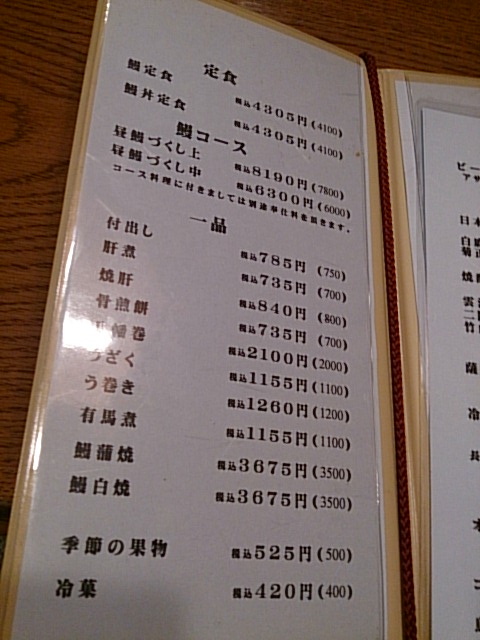 定食
鰻定食 税込4305円(4100)
鰻丼定食 税込4305円(4100)
鰻コース
昼鰻づくし上 税込8190円(7800)
昼鰻づくし中 税込6300円(6000)
コース料理に付きましては別途奉仕料を頂きます。
一品
付出し 税込785円(750)
肝煮 税込735円(700)
焼肝 税込840円(800)
骨煎餅 税込735円(700)
幡巻 税込2100円(2000)
うざく 税込1155円(1100)
う巻き 税込1260円(1200)
有馬煮 税込1155円(1100)
鰻蒲焼 税込3675円(3500)
鰻白焼 税込3675円(3500)
季節の果物 税込525円(500)
冷菓 税込420円(400)
ビー
アサ
日本
白鷹
菊正
焼酎
雲
二
竹
薩
冷
長